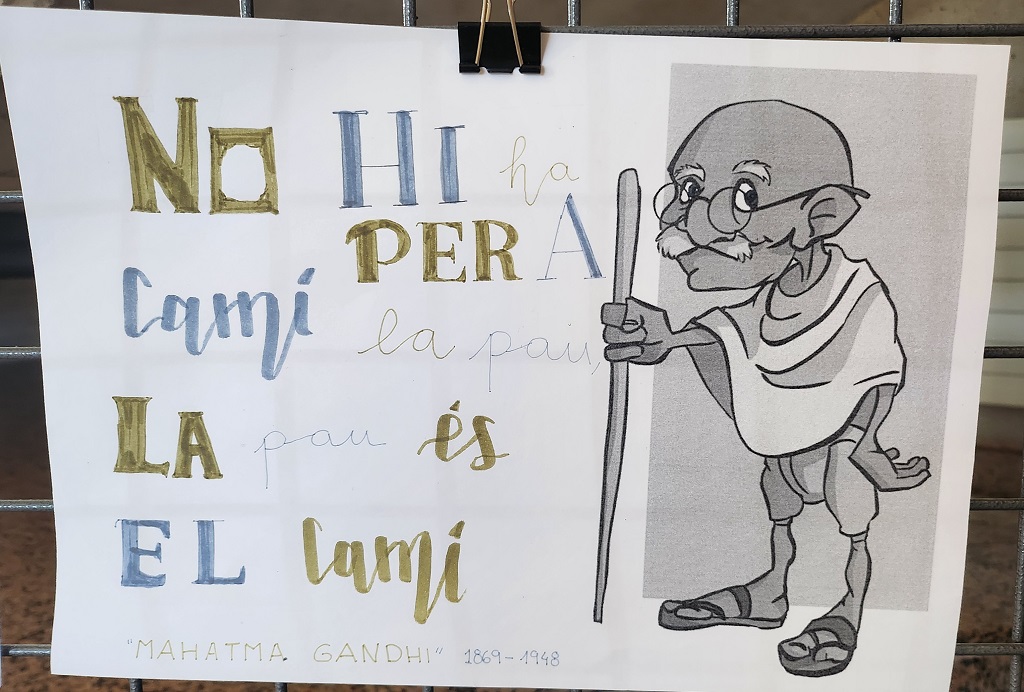 NO HI ha
Camí PER A
la pau,
LA pau és
EL Camí
"MAHATMA GANDHI" 1869-1948